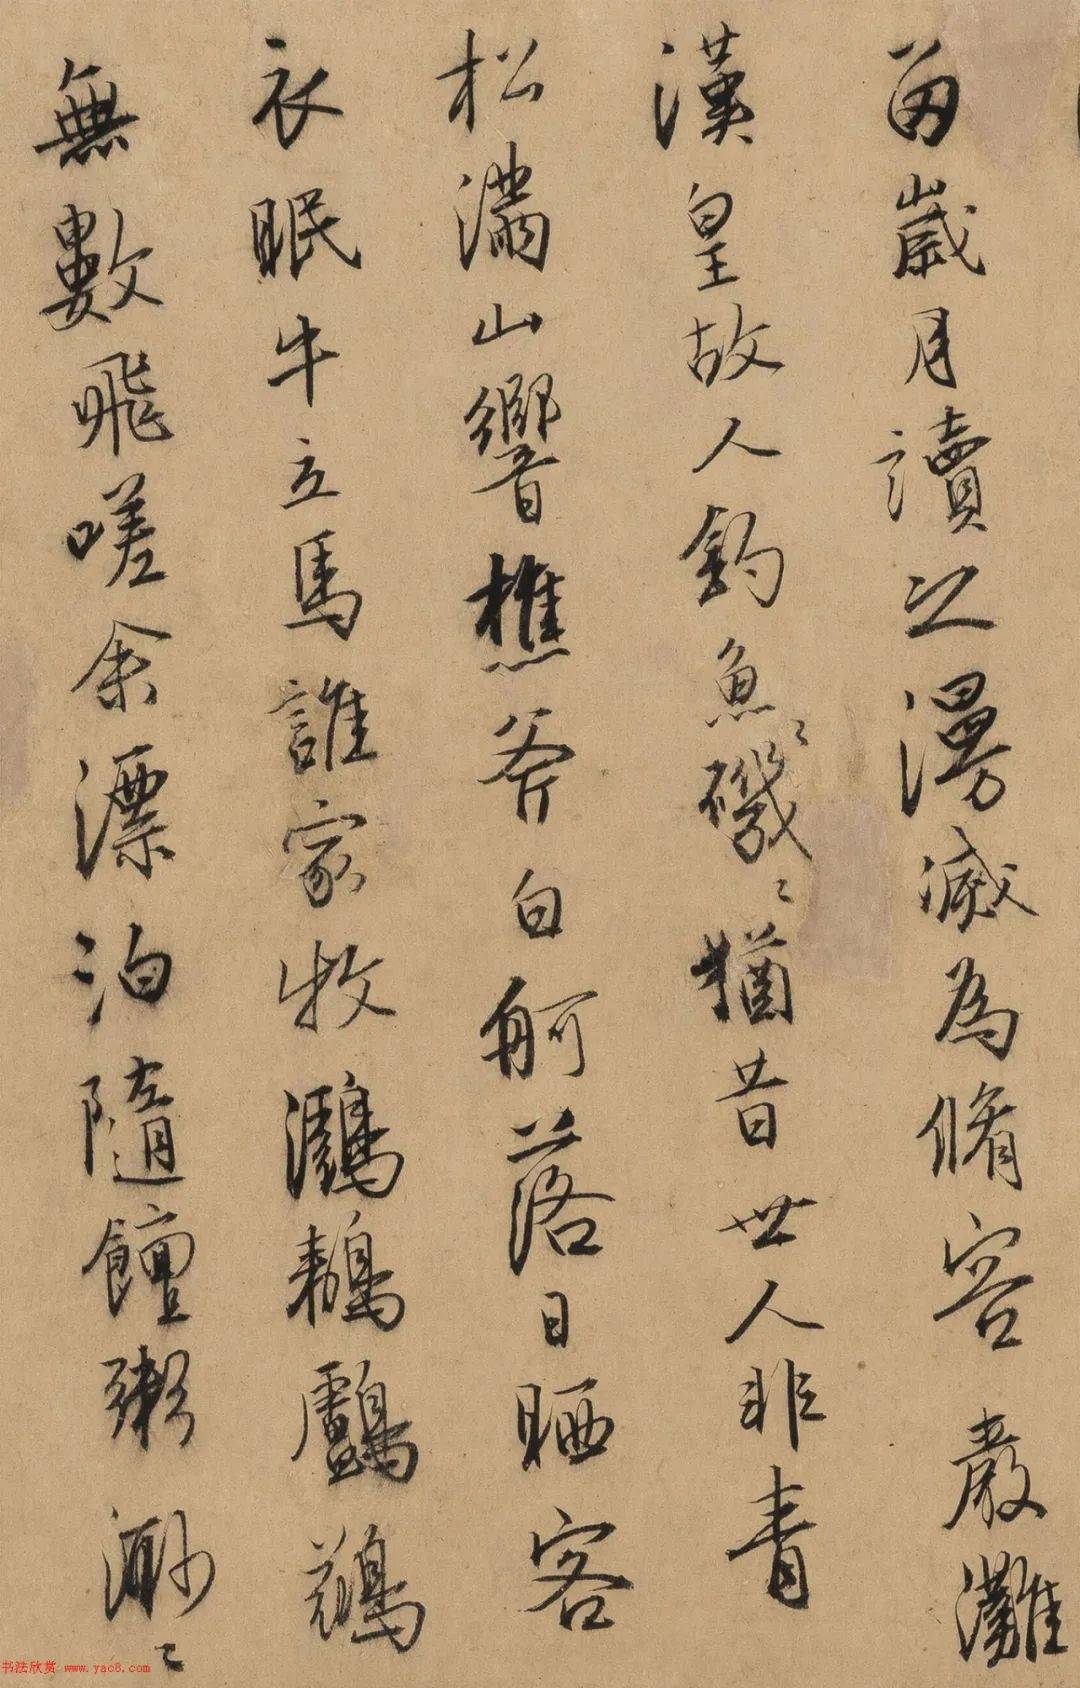 留歲月讀之漫滅為脩容嚴灘
漢皇故人釣魚〻磯〻猶昔世人非青
松滿山響樵斧白舸落日晒客
衣眠牛立馬誰家牧鸂鶒鸕鷀
無數飛嗟余漂泊隨饘粥渺〻
书法欣赏 www.yac8.com